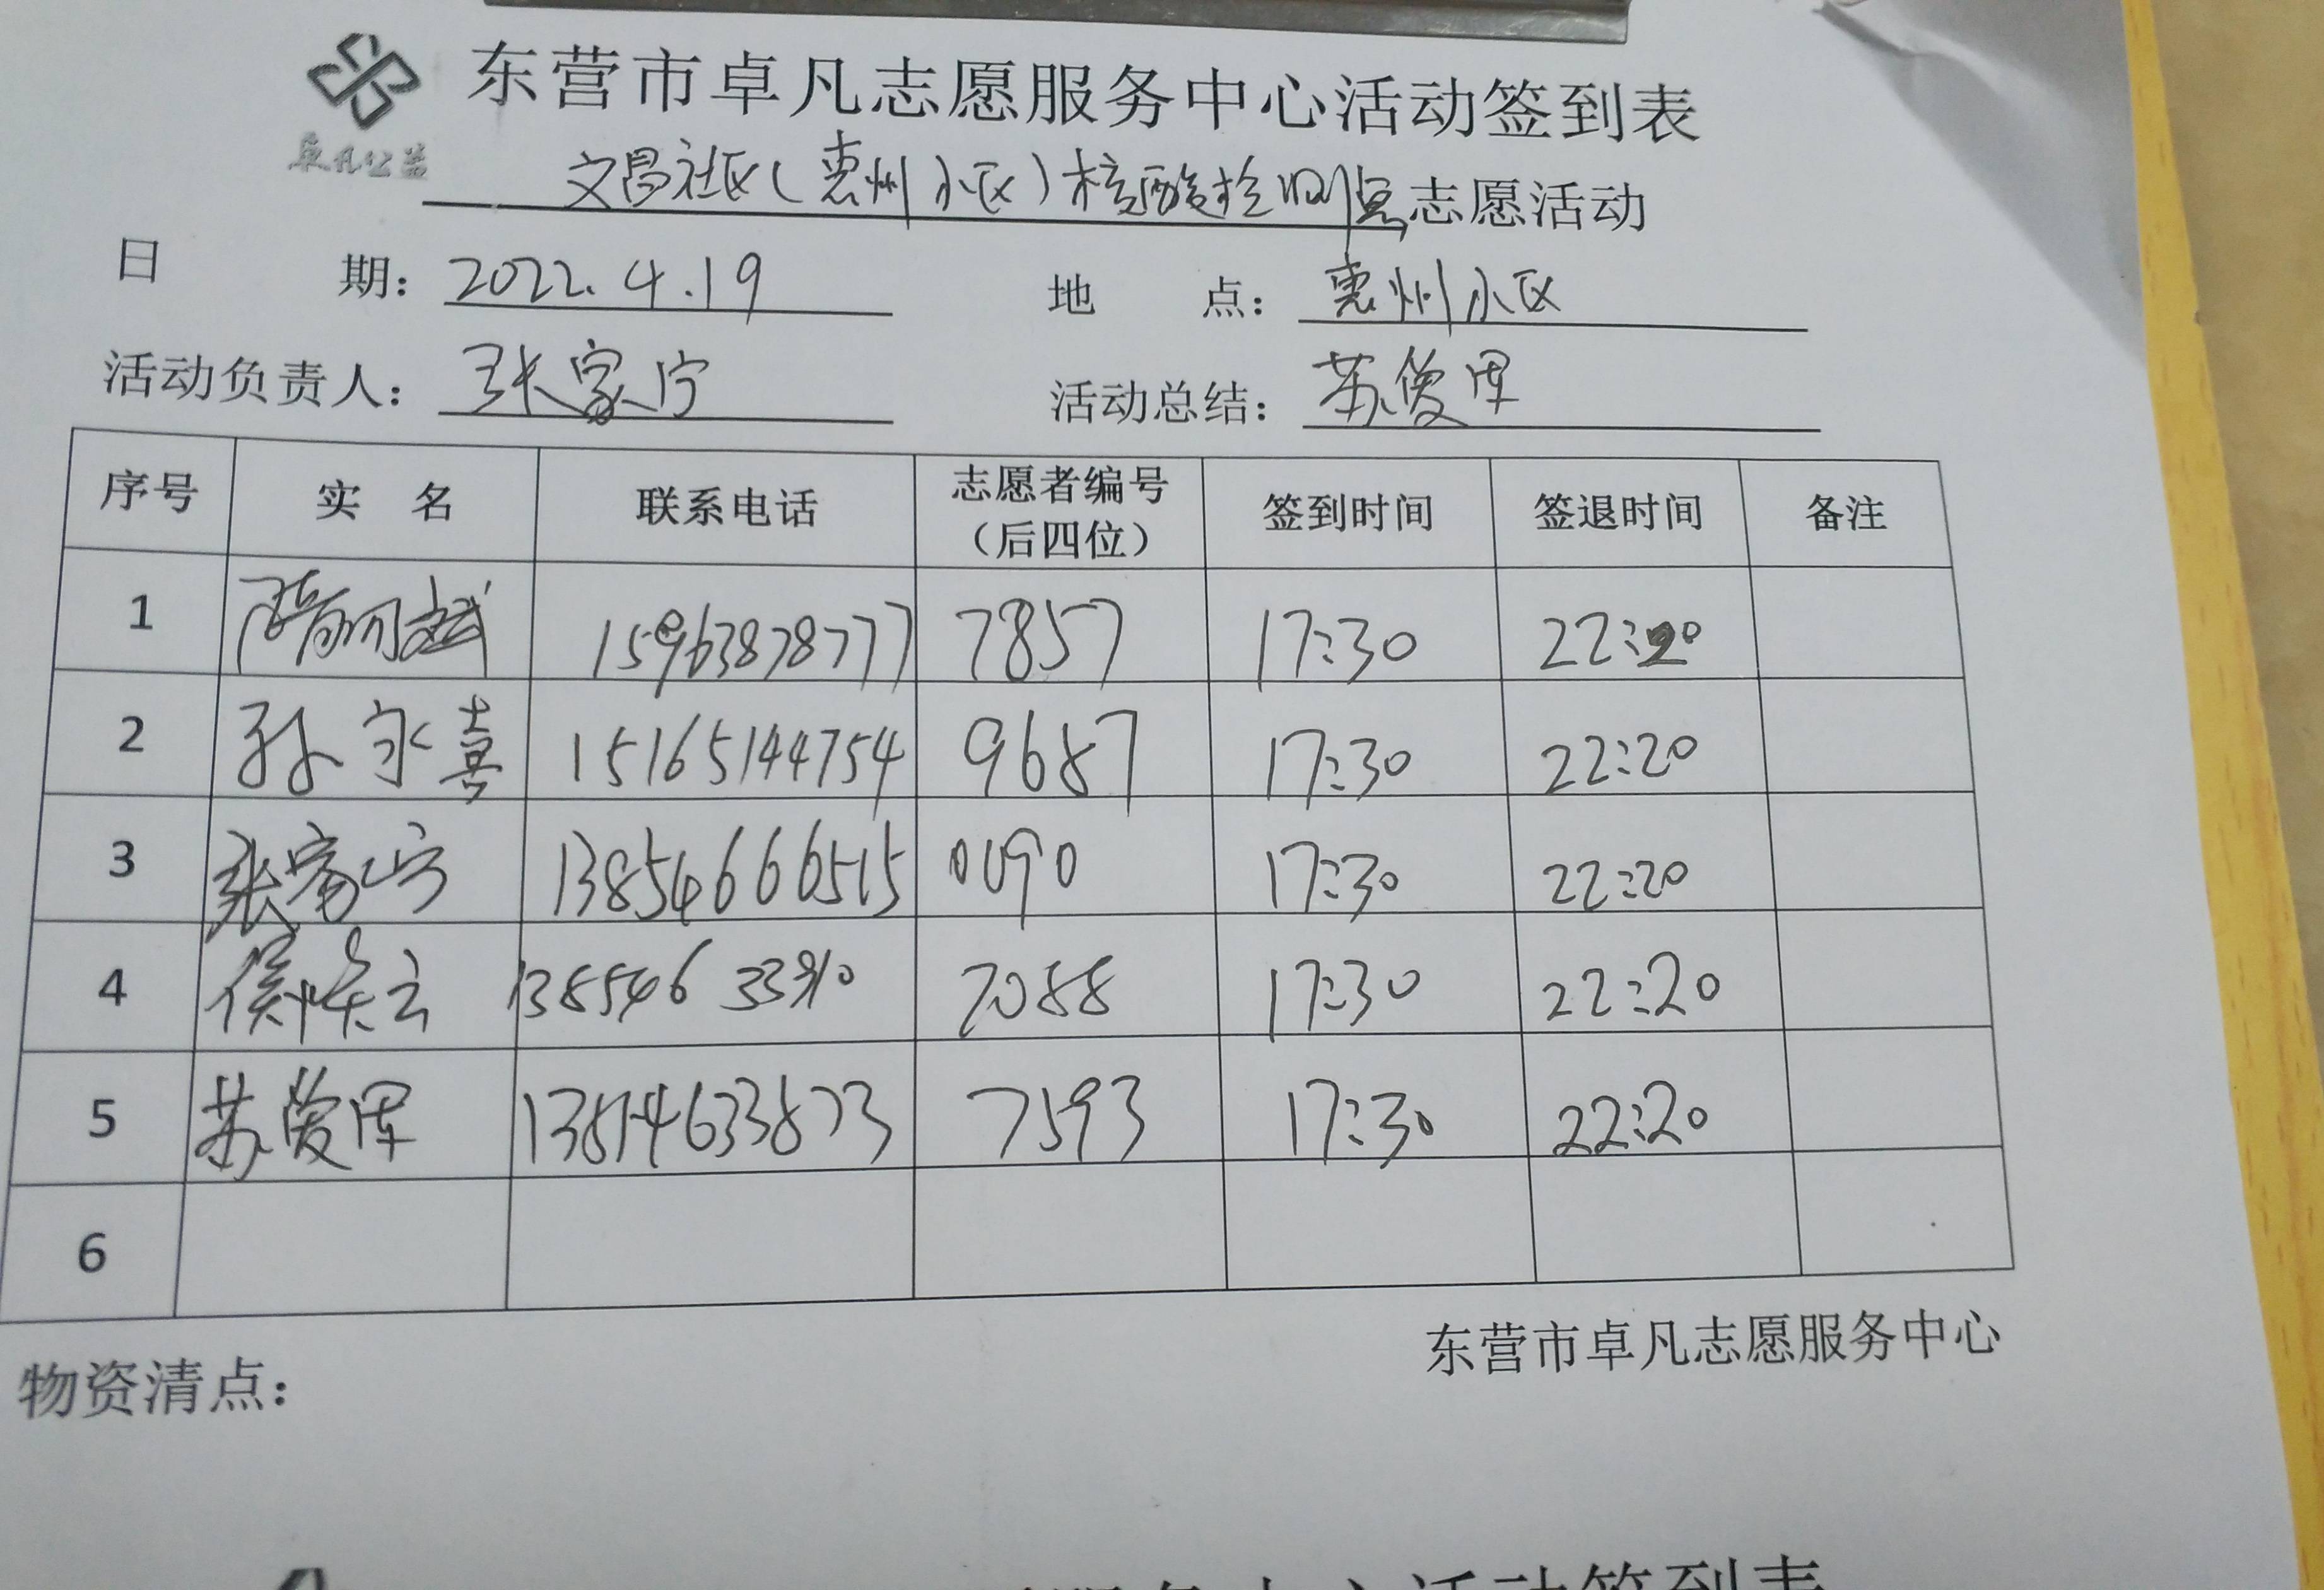 东营市卓凡志愿服务中心活动签到表
卓凡公益
文昌社区(惠州小区)核酸检测点志愿活动
日 期: 2022.4.19 地 点: 惠州小区
活动负责人: 张家宁 活动总结: 苏俊
序号 实 名 联系电话 志愿者编号(后四位) 签到时间 签退时间 备注
1 15963878777 7857 17:30 22:20
2 孙永喜 15165144754 9687 17:30 22:20
3 张家宁 13854666515 0190 17:30 22:20
4 侯 云 7088 17:30 22:20
5 苏俊 7593 17:30 22:20
6
东营市卓凡志愿服务中心
物资清点:
中心活动签到表